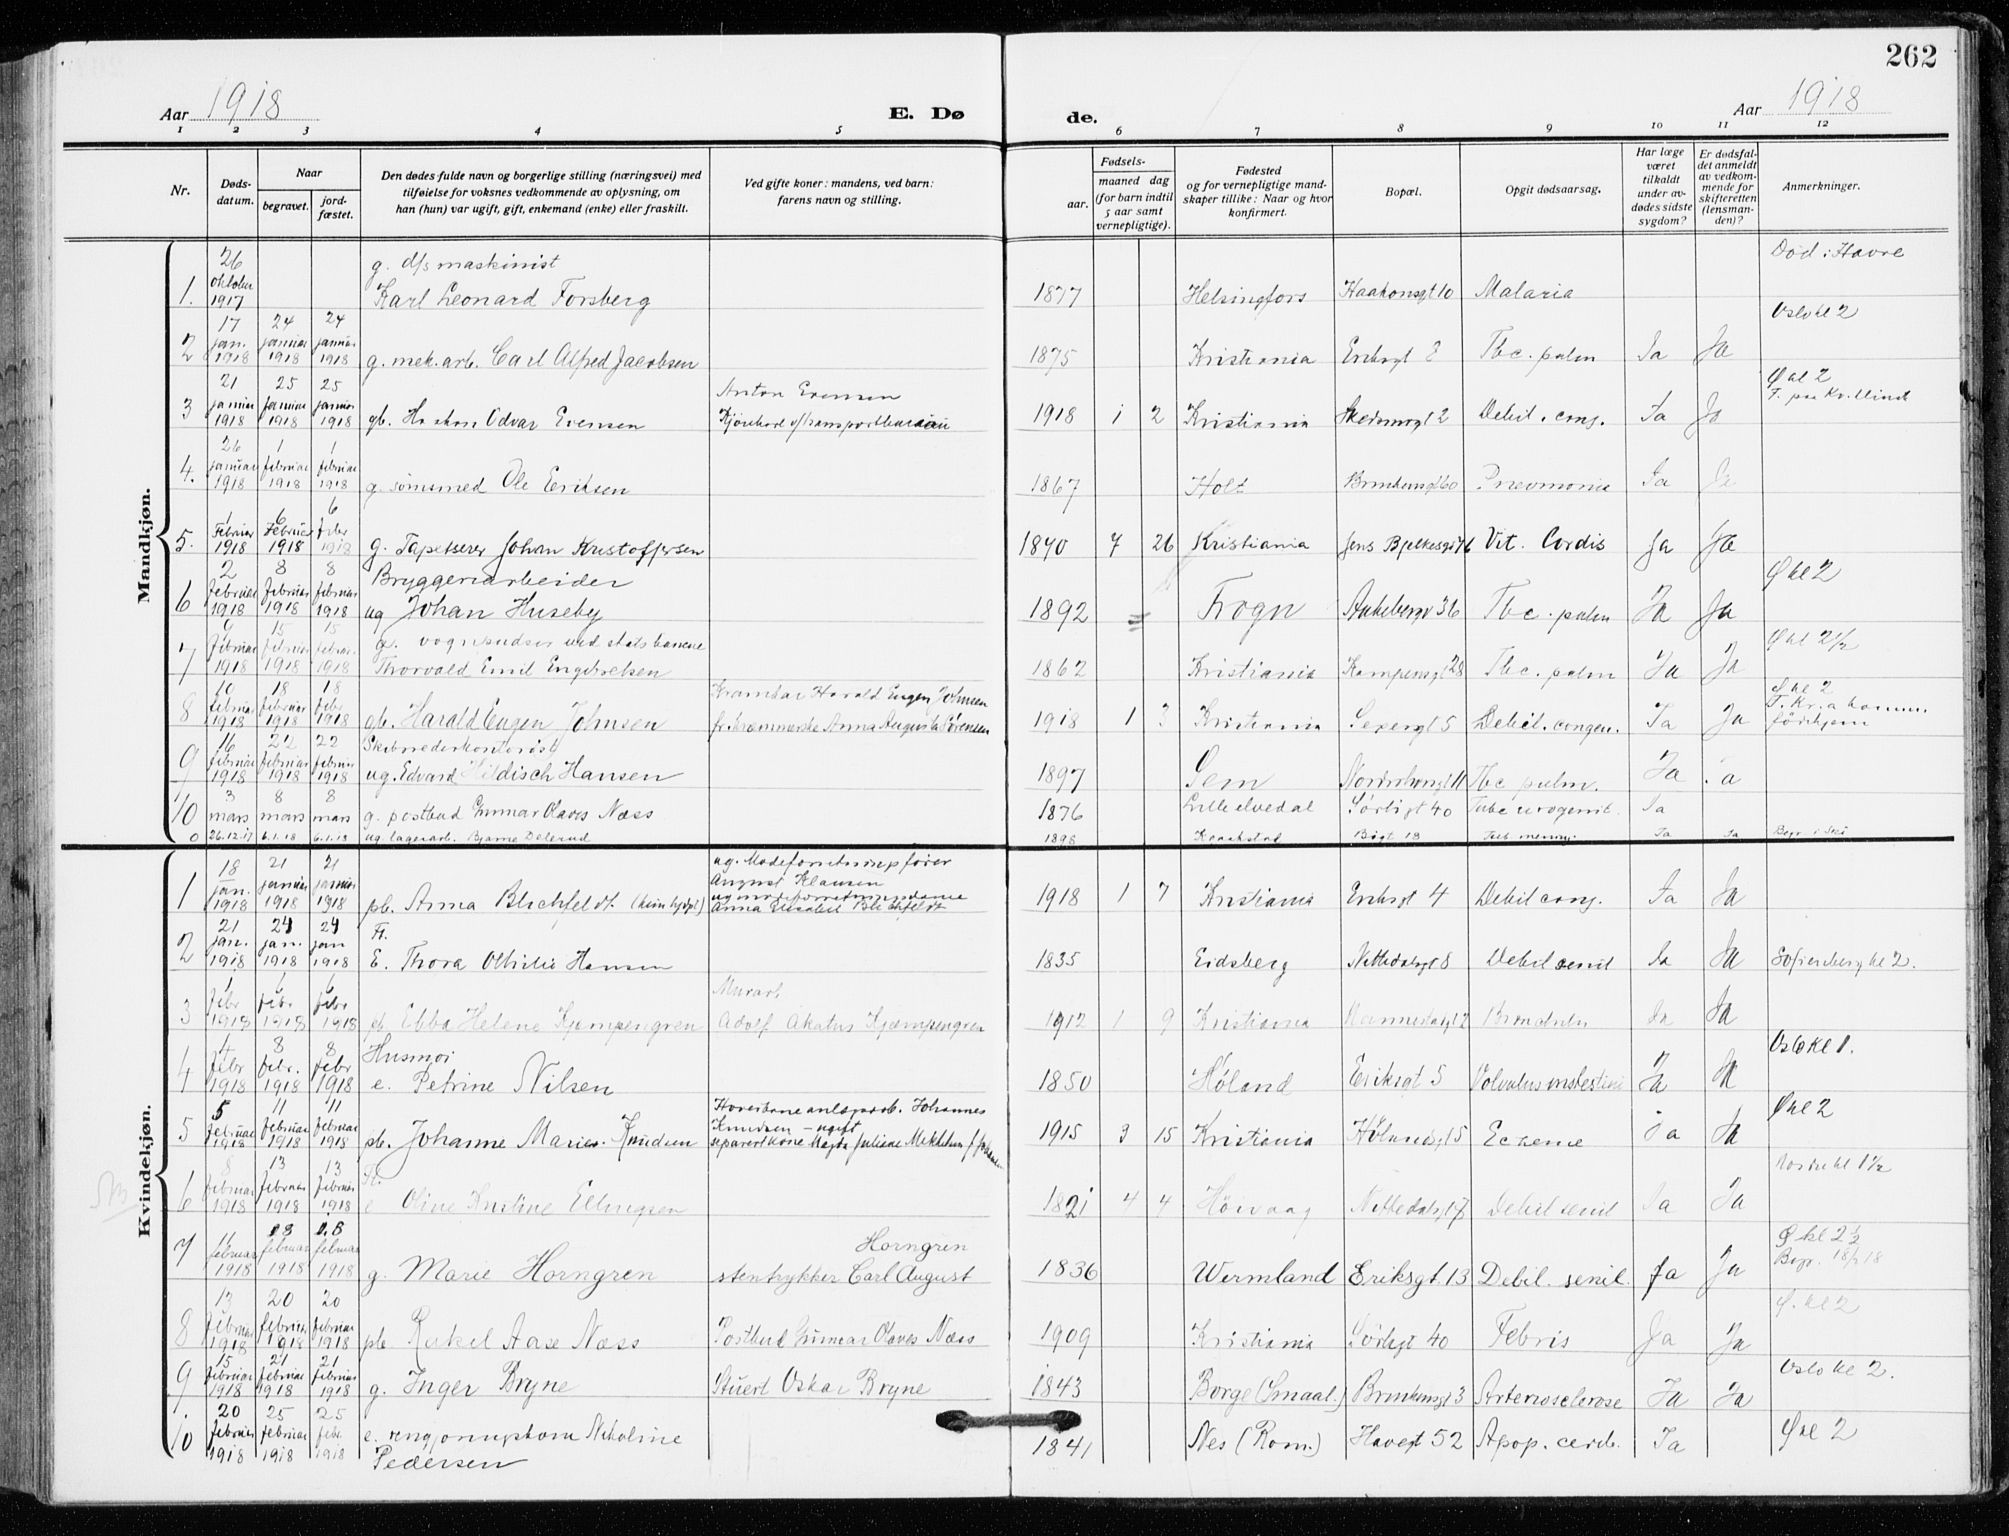 262
Aar 1918 E. Dø de. Aar 1918
1 2 3 4 5 6 7 8 9 10 11 12
Nr.
Døds-
datum.
Naar
begravet.
jord-
fæstet.
Den dødes fulde navn og borgerlige stilling (næringsvei) med
tilføielse for voksnes vedkommende av oplysning, om
han (hun) var ugift, gift, enkemand (enke) eller fraskilt.
Ved gifte koner: mandens, ved barn:
farens navn og stilling.
Fødsels-
aar.
maaned dag
(for barn indtil
5 aar samt
vernepligtige).
Fødested
og for vernepligtige mand-
skaper tillike: Naar og hvor
konfirmert.
Bopæl.
Opgit dødsaarsag.
Har læge
været
tilkaldt
under av-
dødes sidste
sygdom?
Er dødsfal-
det anmeldt
av vedkom-
mende for
skifteretten
(lensman-
den)?
Anmerkninger.
Mandkjøn.
1. 26 oktober 1917 g. d/s maskinist Karl Leonard Forsberg 1877 Helsingfors Haakonsgt 10 Malaria Død i Havre
2 17 jan. 1918 24 januar 1918 24 januar 1918 g. mek. arb. Carl Alfred Jacobsen 1875 Kristiania Eriksgt 2 Tbc. pulm Ja Ja Oslo kl 2
3 21 januar 1918 25 januar 1918 25 januar 1918 gb. Haakon Odvar Evensen Anton Evensen 1918 1 2 Kristiania Skedsmogt 2 Debil. cong. Ja Ja Ø kl 2
4. 26 januar 1918 1 februar 1918 1 februar 1918 g. sømsmed Ole Eriksen 1867 Holt 60 Pneumonia Ja Ja
5. 1 Februar 1918 6 Februar 1918 6 febr 1918 g. Tapetserer Johan Kristoffersen 1840 7 26 Kristiania Jens Bjelkesgt 76 Vit. Cordis Ja Ja
6 2 februar 1918 8 februar 1918 8 februar 1918 Bryggeriarbeider ug Johan Huseby 1892 Frogn Aakebergv 36 Tbc. pulm Ja Ja Ø kl 2
7 9 februar 1918 15 februar 1918 15 februar 1918 g. vognpudser ved statsbanene Thorvald Emil Engebretsen 1862 Kristiania Kampensgt 28 Tbc. pulm Ja Ja Ø kl 2½
8 10 februar 1918 18 februar 1918 18 febr 1918 gb. Harald Eugen Johnsen Harald Eugen Johnsen Anna Augusta Sørensen 1918 1 3 Kristiania Sexesgt 5 Debil. congen. Ja Ja Ø kl 2
9 16 februar 1918 22 februar 1918 22 februar 1918 Skibsrederkontorist ug. Edvard Hildisch Hansen 1897 Sem 11 Tbc pulm. Ja
10 3 mars 1918 8 mars 1918 8 mars 1918 g. postbud Gunnar Olaves Næss 1876 Lilleelvedal Sørligt 40 Tubc urogenit. Ja
0 26.12.17 6.1.18 6.1.18 ug lagerarb. Bjarne Delerud 1898 Kraakstad Bøgt 18 Tub. mening. Ja Ja Begr. i Ski
Kvindekjøn.
1 18 jan. 1918 21 januar 1918 21 januar 1918 pb. Anna Blichfeldt ug. August Klausen Anna Elisabet Blichfeldt 1918 1 7 Kristiania Eriksgt 4 Debil cong. Ja Ja
2 21 jan. 1918 24 jan. 1918 24 jan 1918 Fr. E. Thora Othilie Hansen 1835 Eidsberg Nittedalsgt 8 Debil senil Ja Ja Sofienberg kl 2.
3 1 febr 1918 6 febr. 1918 6 febr 1918 pb. Ebba Helene Kjempengren Murarb. Adolf Akatus Kjæmpengren 1912 1 9 Kristiania Ja Ja
4 4 febr 1918 8 febr. 1918 8 febr 1918 Husmor e. Petrine Nilsen 1850 Høland Eriksgt 5 Volvulus intestini Ja Ja Oslo kl 1.
5 5 februar 1918 11 februar 1918 11 februar 1918 pb. Johanne Marie Knudsen Johannes Knudsen - ugift 1915 3 15 Kristiania Hølandsgt 5 Eczeme Ja Ja Ø kl 2
6 8 februar 1918 13 februar 1918 13 februar 1918 Fr. e Oline Kristine Ellingsen 1821 4 4 Høivaag Nittedalsgt Debil senil Ja Ja Nordre kl 1½
7 11 februar 1918 18 februar 1918 18 februar 1918 g. Marie Horngren stentrykker Carl August Horngren 1836 Wermland Eriksgt. 13 Debil. senil. Ja Ja Ø kl 2½ Begr. 18/2 18
8 13 februar 1918 20 februar 1918 20 februar 1918 pb. Rakel Aase Næss Postbud Gunnar Olaves Næss 1909 Kristiania Sørligt 40 Febris Ja Ja Ø. kl 2
9 15 februar 1918 21 februar 1918 21 februar 1918 g. Inger Bryne Stuert Oskar Bryne 1843 Borge (Smaal.) 3 Arteriosclerose Ja Ja Oslo kl 2.
10 20 februar 1918 25 februar 1918 25 febr 1918 e. rengjøringskone Nikoline Pedersen 1841 Nes (Rom.) Havegt 52 Apop. cereb. Ja Ø kl 2